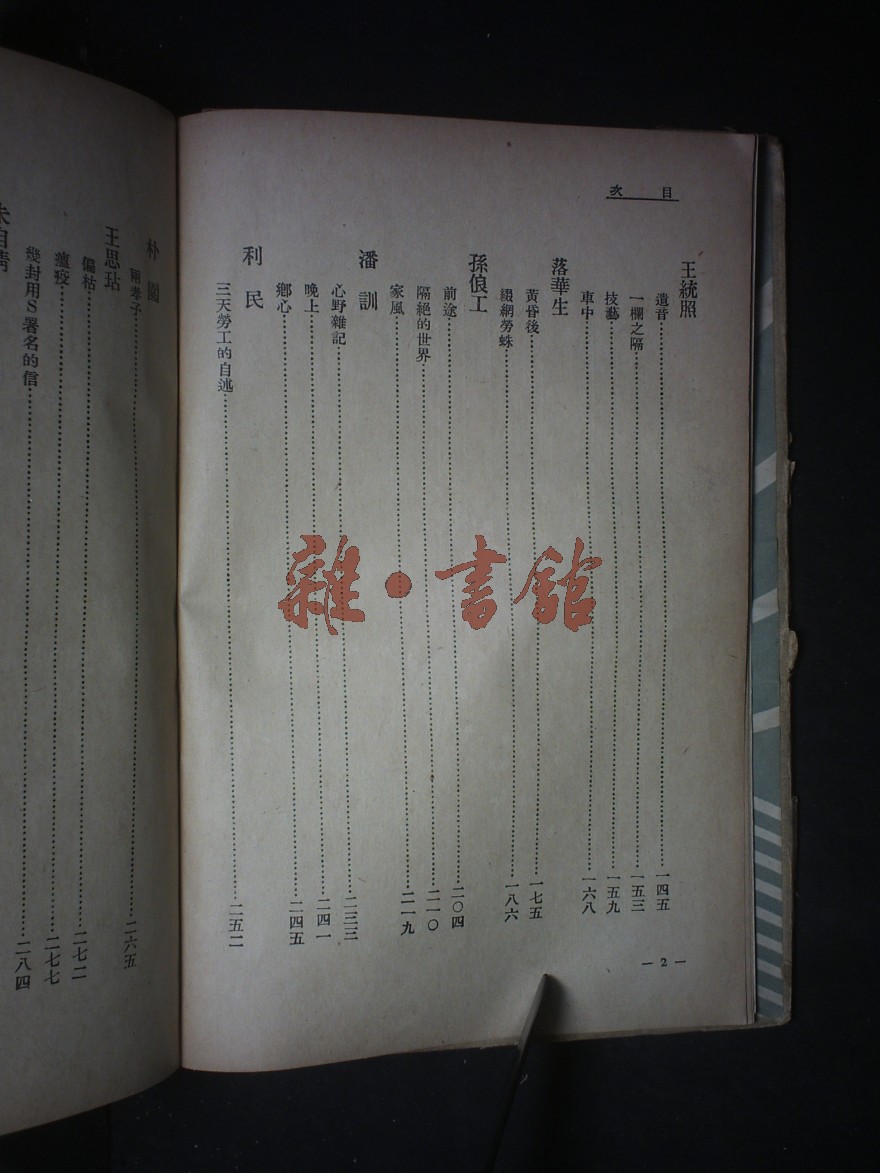 目次
王統照
遺音……一四五
一欄之隔……一五三
技藝……一五九
車中……一六八
落華生
黃昏後……一七五
綴網勞蛛……一八六
孫俍工
前途……二〇四
隔絕的世界……二一〇
家風……二一九
潘訓
心野雜記……二三三
晚上……二四一
鄉心……二四五
利民
三天勞工的自述……二五二
— 2 —
朴園
兩孝子……二六五
王思玷
偏枯……二七二
瘟疫……二七七
幾封用S署名的信……二八四
朱自清
雜·書館